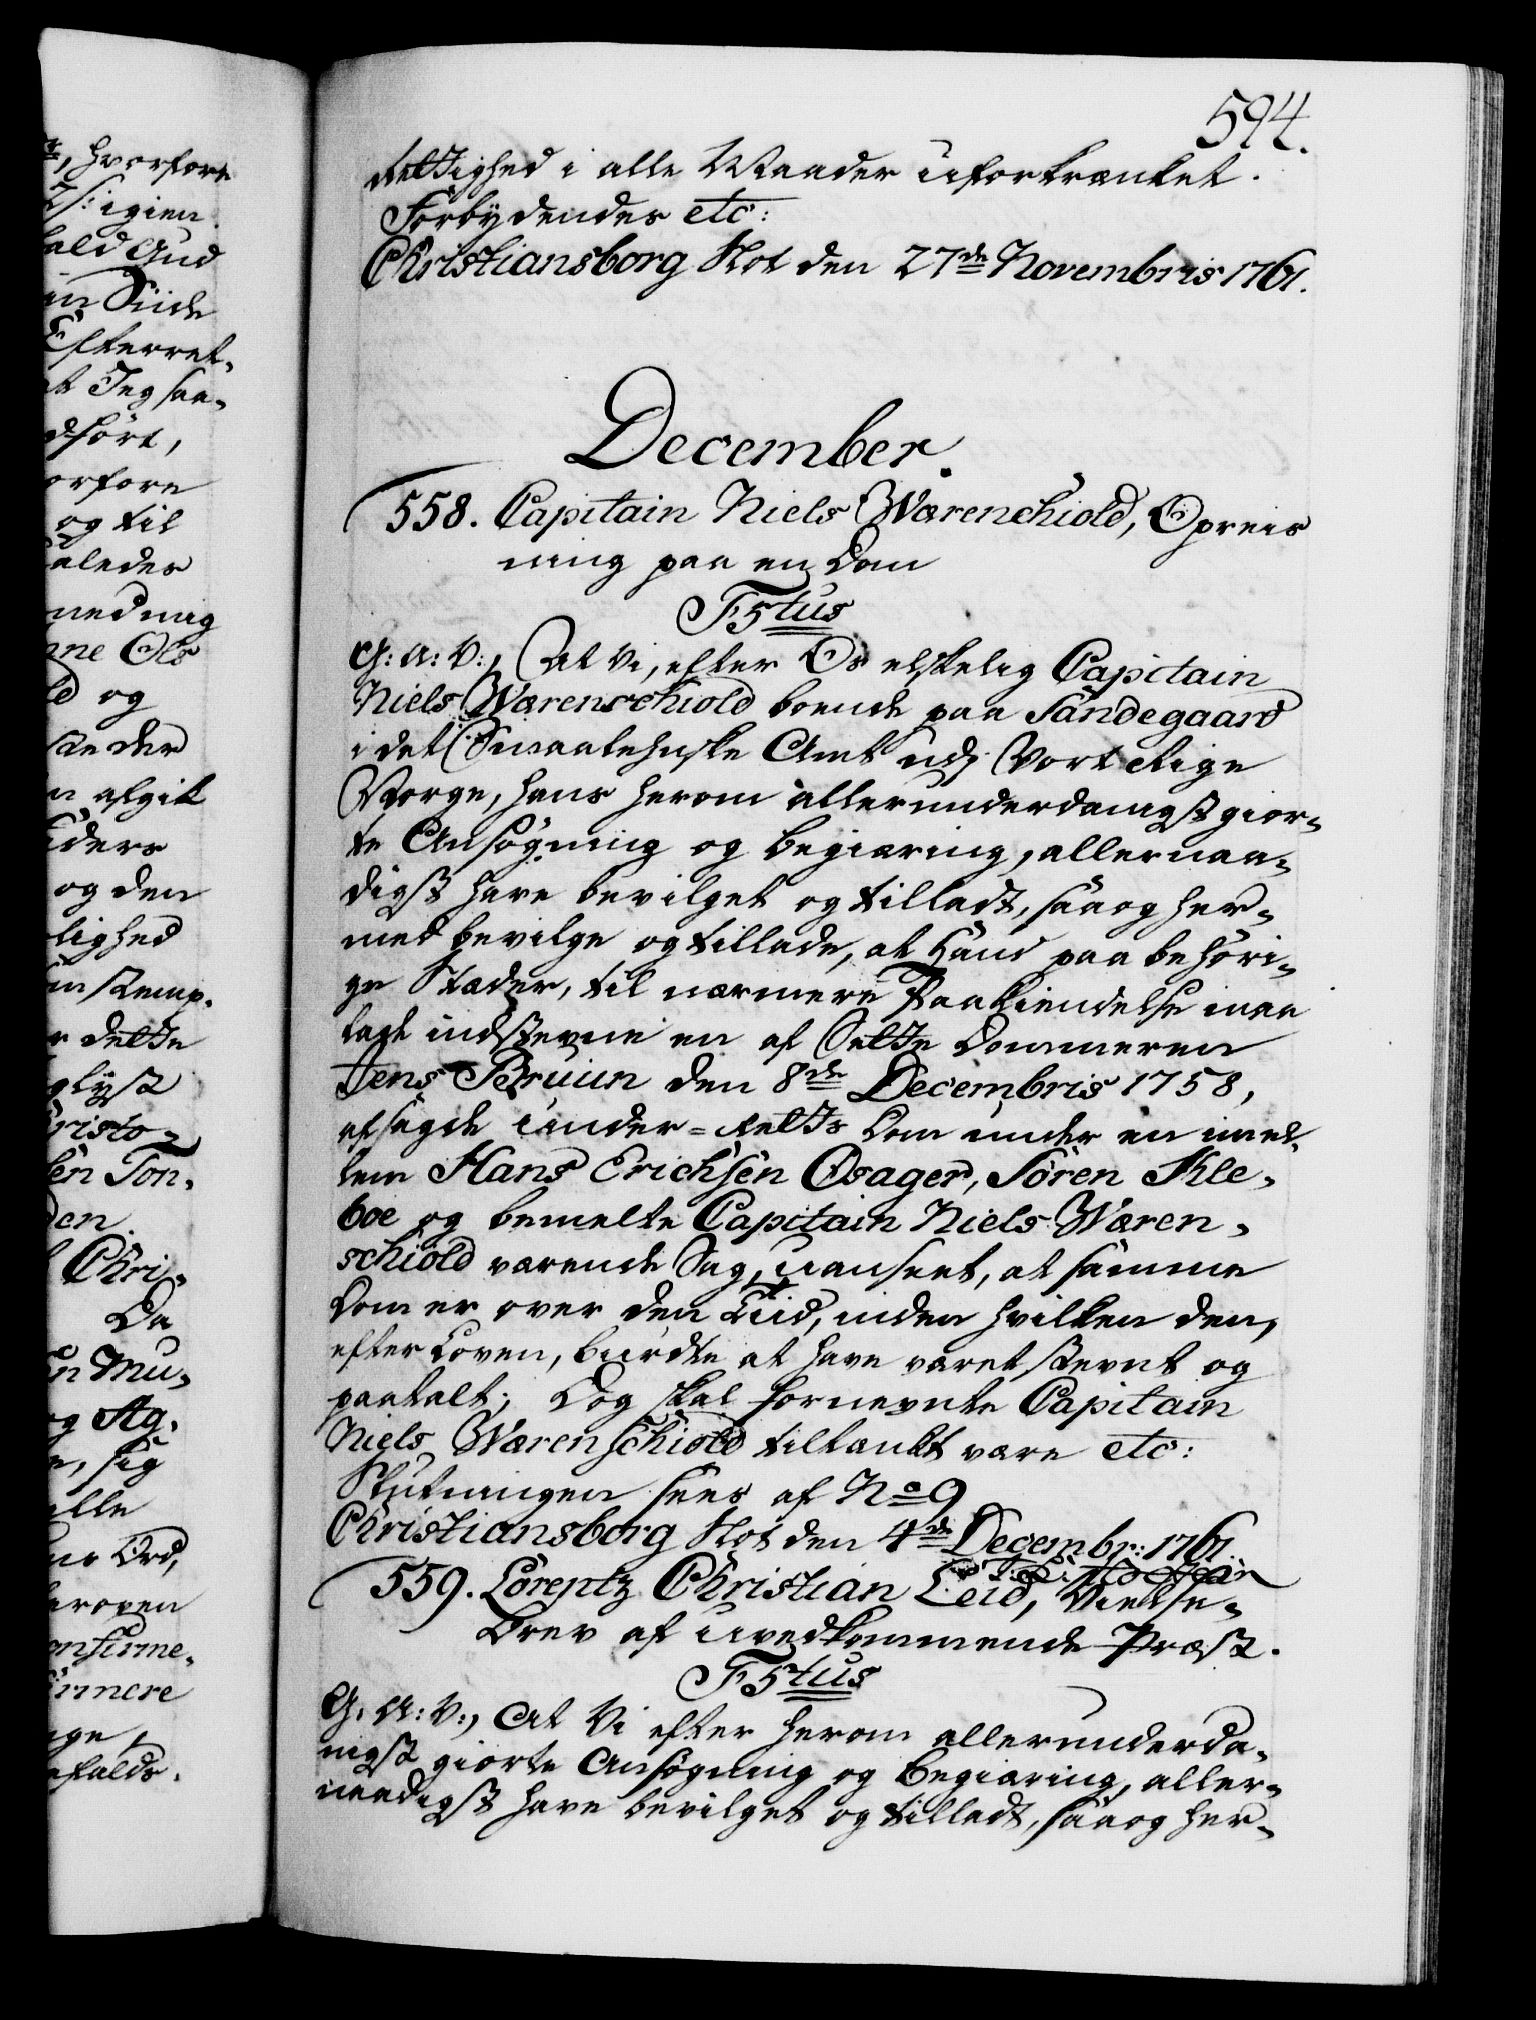 594.
Rettighed i alle Maader uforkrænket.
Forbydendes etc:
Christiansborg Slot den 27de Novembris 1761.
December.
558. Capitain Niels Wærenschiold, Opreis
ning paa en Dom
F5tus
G: A: V:, At Vi, efter Os elskelig Capitain
Niels Wærenschiold boende paa Sandegaard
i det Smaalehnske Amt udj Vort Rige
Norge, hans herom allerunderdanigst gior-
te Ansøgning og begiæring, allernaa-
digst have bevilget og tilladt, saa og her-
med bevilge og tillade, at Hand paa behöri-
ge Stæder, til nærmere Paakiendelse maa
lade indstevne en af Sætte Dommeren
Jens Bruun den 8de Decembris 1758,
afsagde under-Retts Dom under en imel-
lem Hans Erichsen Osager, Sören Kle-
boe og bemelte Capitain Niels Wæren-
schiold værende Sag, uanseet, at samme
Dom er over den Tiid, inden hvilken den,
efter Loven, burdte at have været stevnt og
paatalt; Dog skal fornevnte Capitain
Niels Wærenschiold tiltænkt være etc:
Slutningen sees af No 9
Christiansborg Slot den 4de Decembr: 1761
559. Lorentz Christian Leid, Vielse-
Brev af uvedkommende Præst.
F5tus
G: A: V:, At Vi efter herom allerunderda-
nigst giorte Ansøgning og Begiæring, aller-
naadigst have bevilget og tilladt, saa og her-